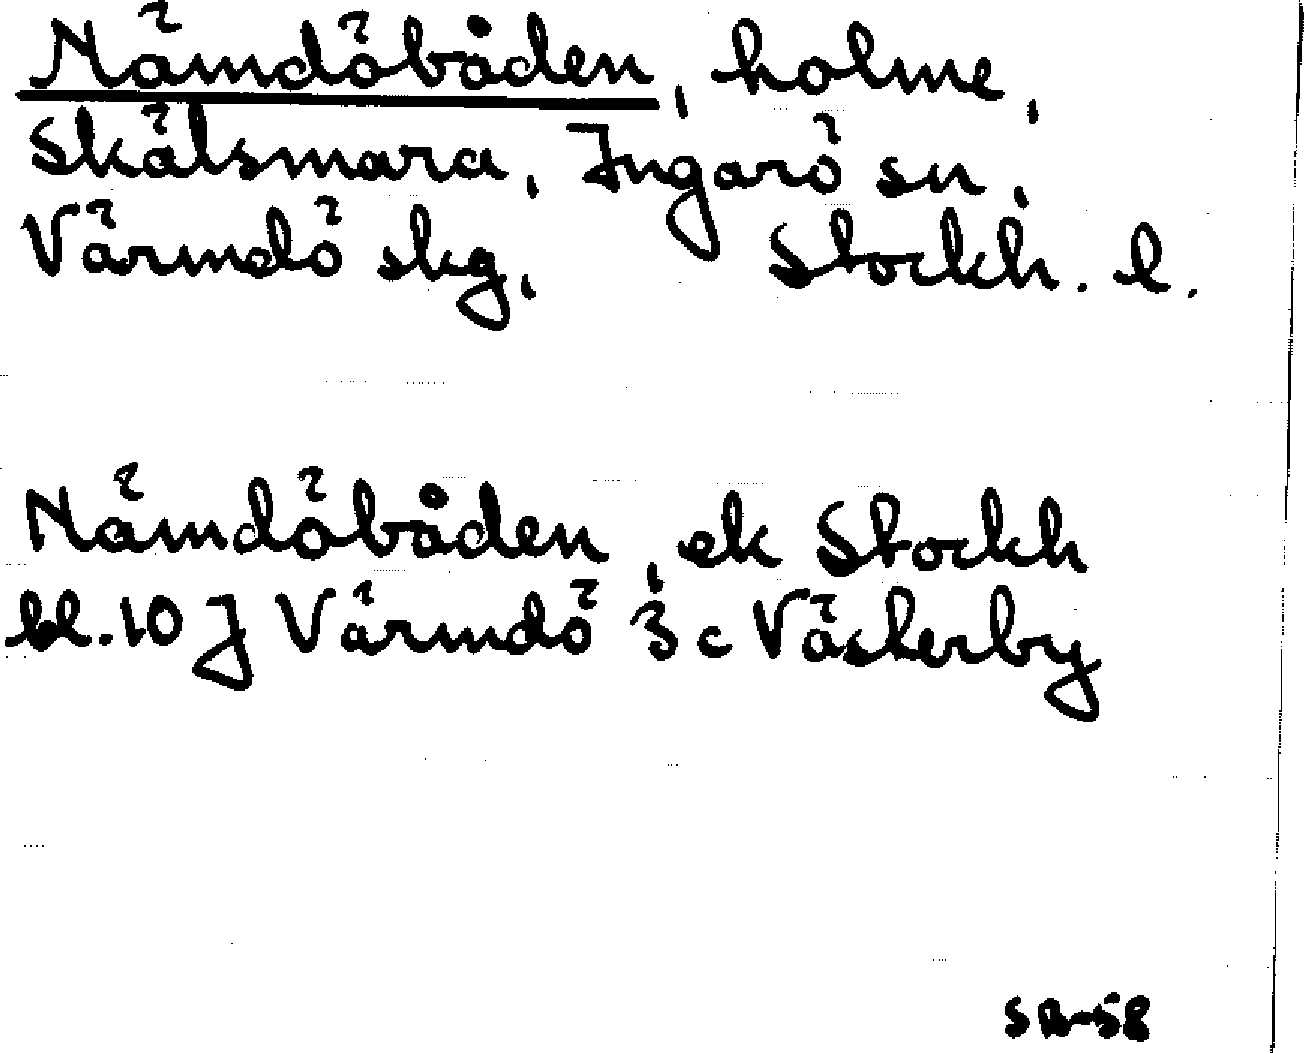 Nämdöbåden, holme,
Skälsmara, Ingarö sn,
Värmdö skg, Stockh. l.
Nämdöbåden, ek Stockh
bl. 10 J Värmdö 3 c Västerby
SB-58